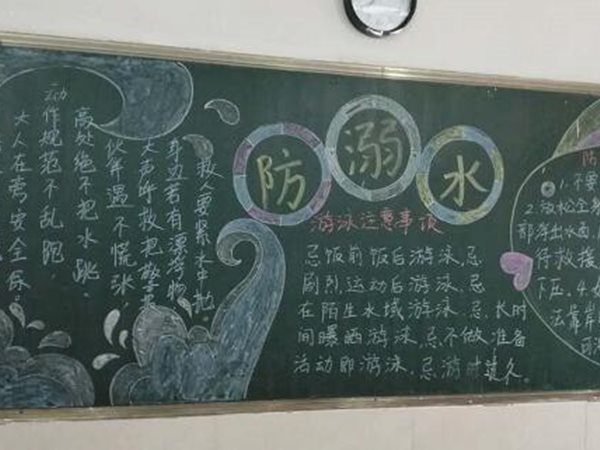 防溺水
游泳注意事项
忌饭前饭后游泳、忌
剧烈运动后游泳、忌
在陌生水域游泳、忌长时
间曝晒游泳、忌不做准备
活动即游泳、忌游时过久。
救人要紧水中
身边若有漂荡物
大声呼救把警
伙伴遇 不慌张,
高处绝不把水跳
动作规范不乱跑,
大人在旁安全保。
防
1.不要
2.放松全身
部浮出水面
待救援
下压。4.
法靠岸